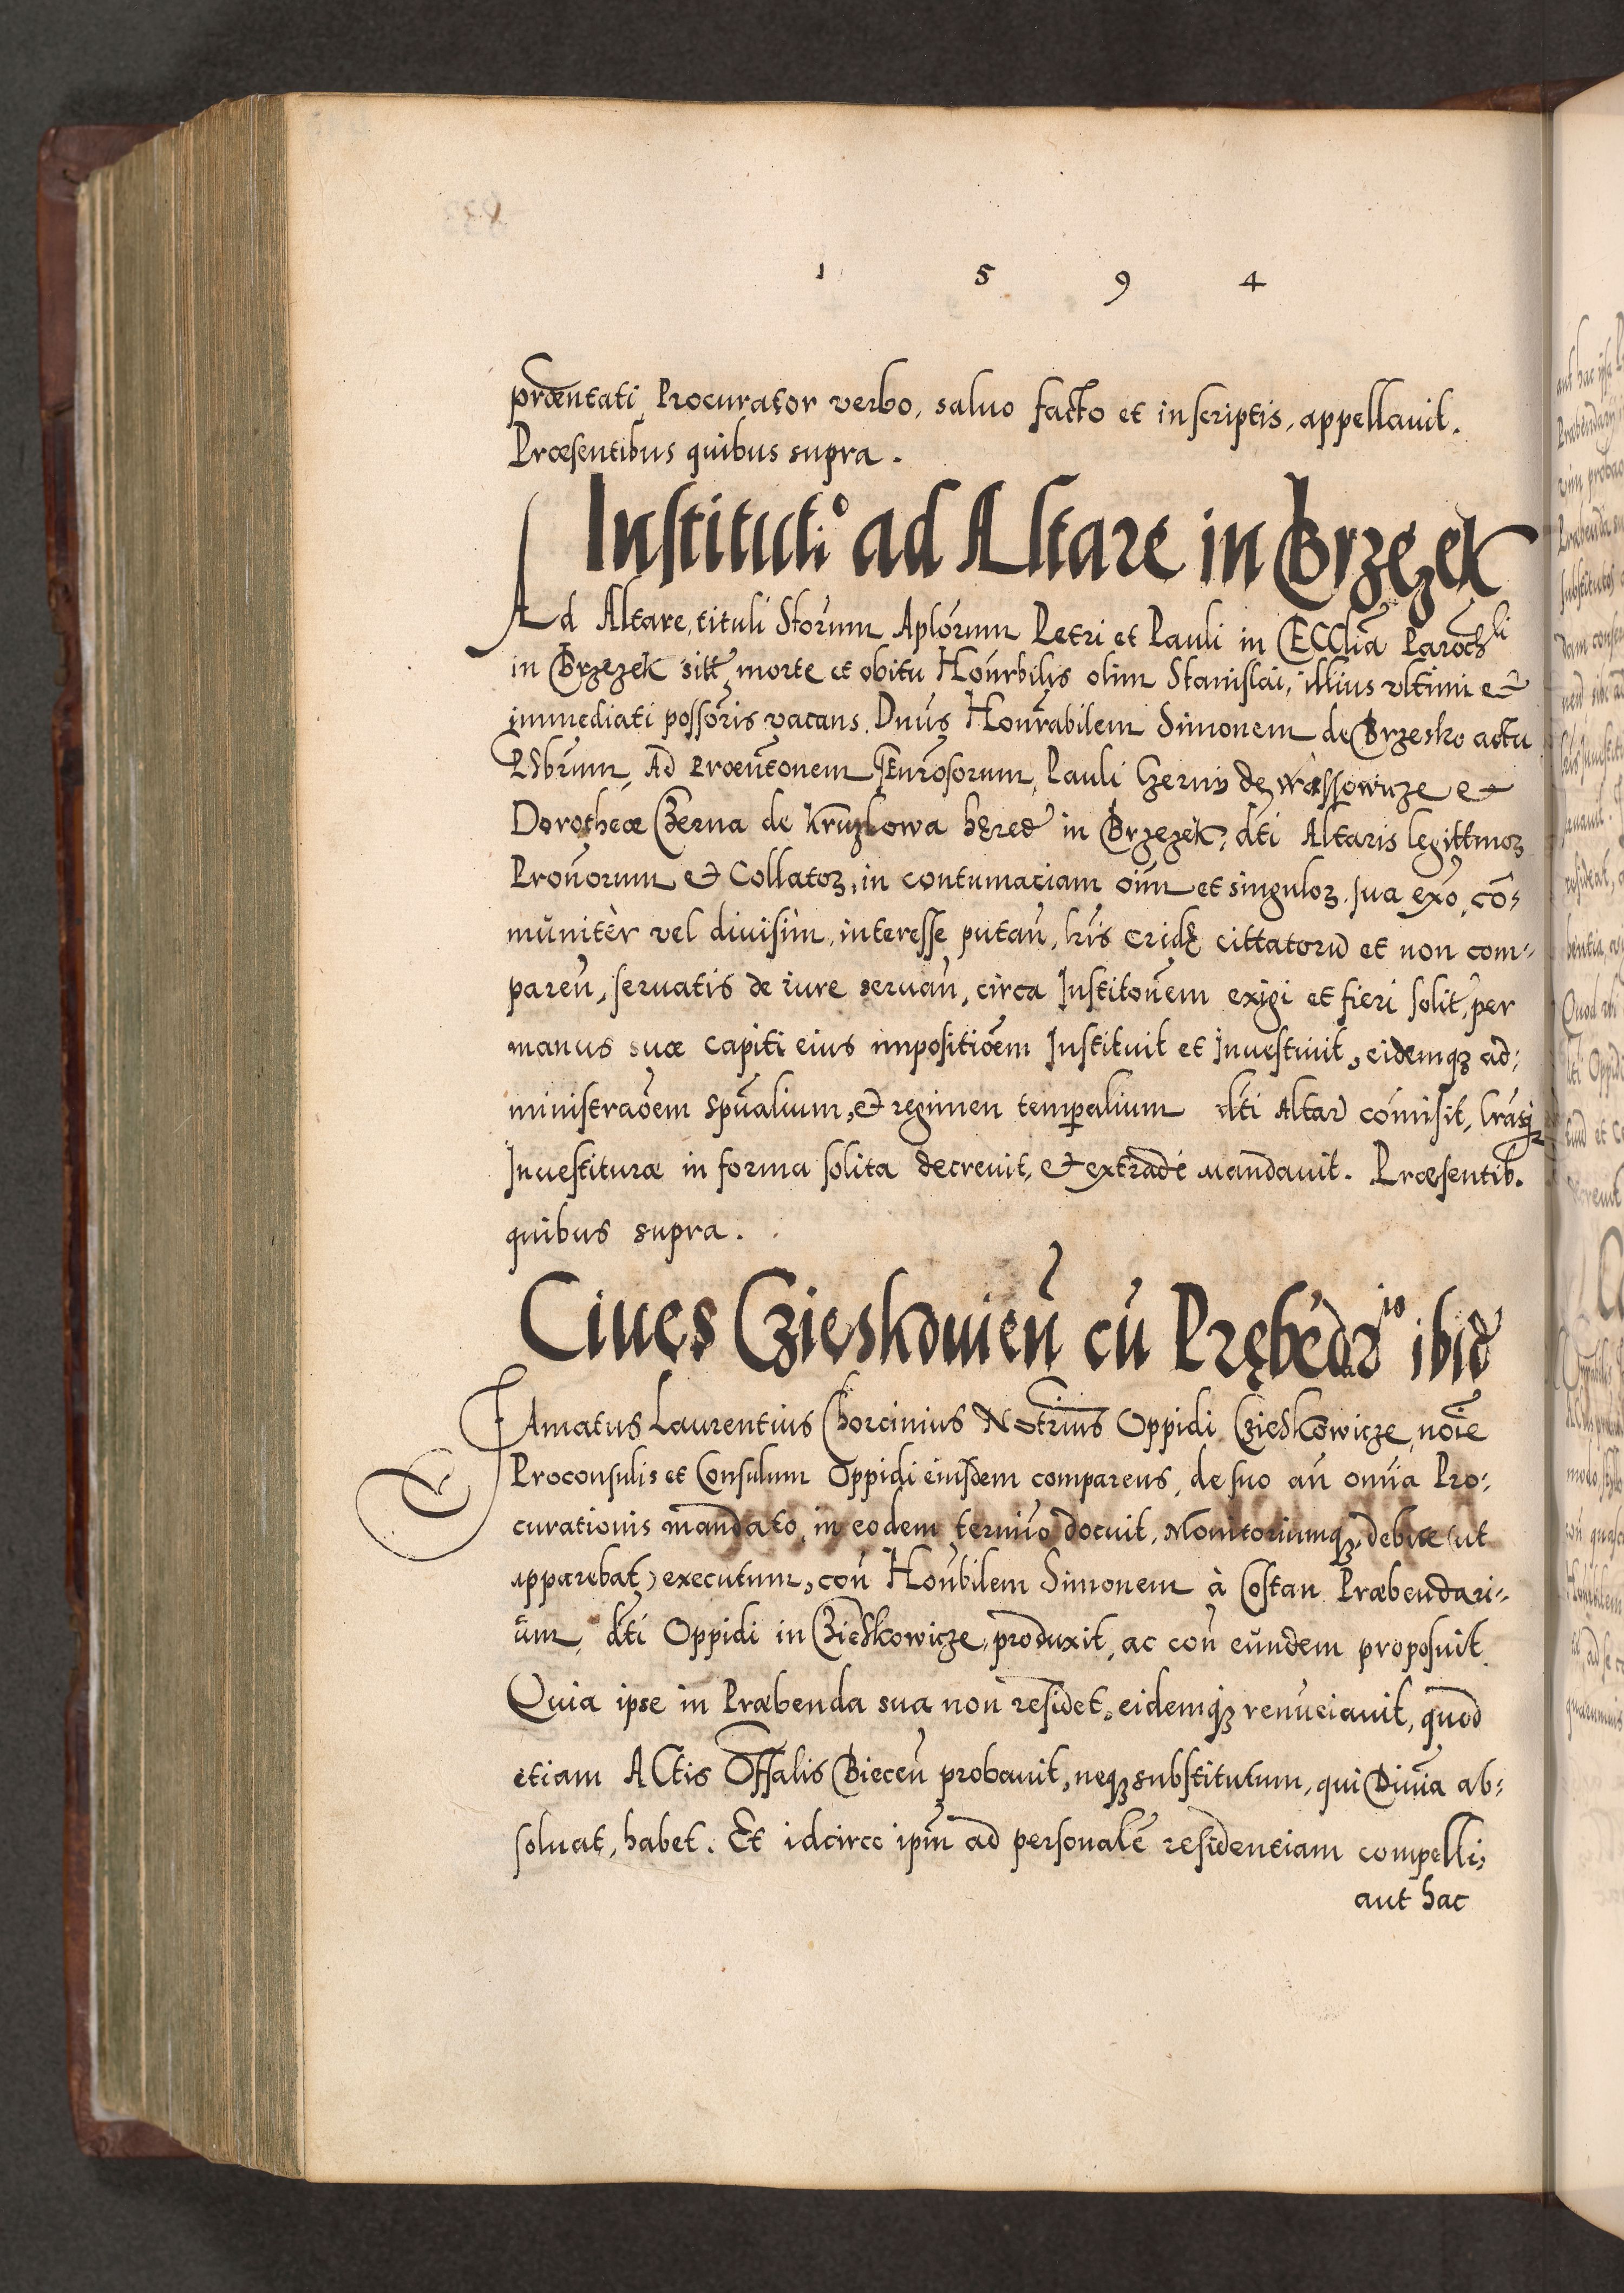 1 5 9 4
præntati Procurator verbo, saluo facto et in scriptis, appellauit.
Præsentibus quibus supra.
Instituti° ad Altare in Brzezek
Ad Altare, tituli Storum Aplorum Petri et Pauli in ECCliã Paroch li
in Brzezek sitt morte et obitu Honrbilis olim Stanislai, illius vltimi et
immediati possoris vacans. Dnus Honrabilem Simonem de Brzesko actu
Psbrum, Ad Præntonem Genrosorum, Pauli Czerny de Wrassowicze et
Dorotheæ Czerna de Kruzlowa hæred in Brzezek, dti Altaris legittmoꝝ
Pronorum et Collatoꝝ, in contumaciam oim et singuloꝝ sua exo, cô-
munitèr vel diuisìm, interesse putañ, lris cridę cittatorũ et non com-
pareñ, seruatis de iure seruañ, circa Institonem exigi et fieri solit, per
manus suæ capiti eius impositiõem Instituit et Inuestiuit, eidemqꝫ ad-
ministraõem spualium, et regimen temp̄alium dti Altar comisit, lrasqꝫ
Inuestituræ in forma solita decreuit, et extrade mandauit. Præsentib.
quibus supra.
Ciues Czieskouieñ cũ Prębẽdr io ibid
Famatus Laurentius Chorcinius Notrius Oppidi Czieskowicze, noie
Proconsulis et Consulum Oppidi eiusdem comparens, de suo añ omia Pro-
curationis mandato, in eodem termino docuit, Monitoriumqꝫ debite (ut
apparebat) executum, coñ Honbilem Simonem à Costan Præbendari-
um, dti Oppidi in Czieskowicze, produxit, ac coñ eundem proposuit.
Quia ipse in Præbenda sua non residet, eidemqꝫ renuciauit, quod
etiam ACtis Offalis Bieceñ probauit, neqꝫ substitutum, qui Diuia ab-
soluat, habet. Et idcirco ipm ad personalẽ residentiam compelli,
aut hac